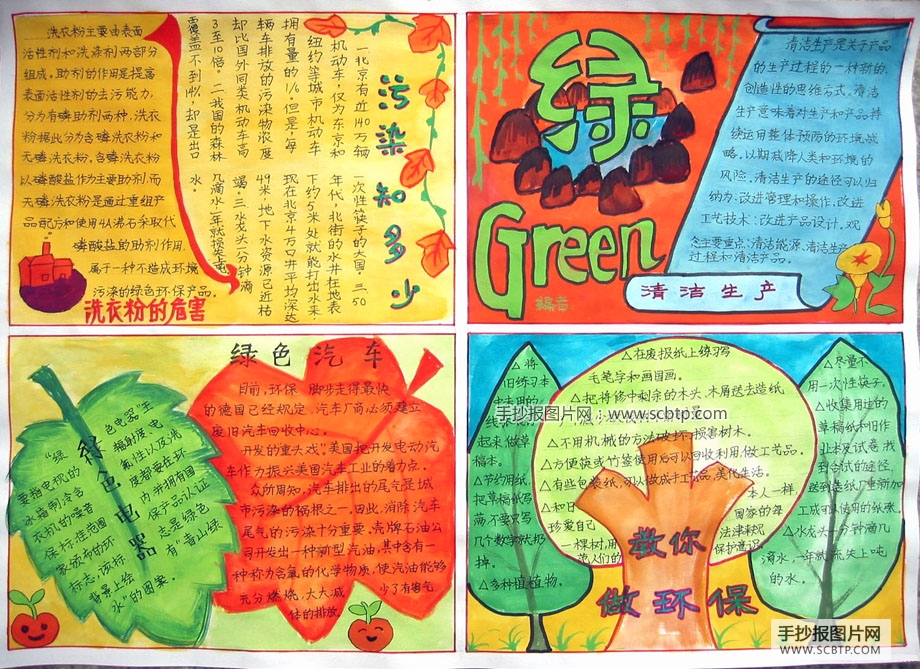 洗衣粉主要由表面
活性剂和洗涤剂两部分
组成，助剂的作用是提高
表面活性剂的去污能力，
分为有磷助剂两种，洗衣
粉据此分为含磷洗衣粉和
无磷洗衣粉，含磷洗衣粉
以磷酸盐作为主要助剂，而
无磷洗衣粉是通过重组产
品配方和使用4A沸石采取代
磷酸盐的助剂作用，
属于一种不造成环境
污染的绿色环保产品。
洗衣粉的危害
污染知多少
一北京有近140万辆
机动车，仅为东京和
纽约等城市机动车
拥有量的1/6，但是，每
辆车排放的污染物浓度
却比国外同类机动车高
3至10倍。二我国的森林
覆盖不到14%，却是出口
一次性筷子的大国。三50
年代，北街的水井在地表
下约5米处就能打出水来，
现在北京4万口井平均深达
49米，地下水资源已近枯
竭。三水龙头一分钟滴
几滴水，一年就损失
水。
绿
Green
编者：
清洁生产是关于产品
的生产过程的一种新的，
创造性的思维方式。清洁
生产意味着对生产和产品持
续运用整体预防的环境战
略，以期减降人类和环境的
风险，清洁生产的途径可以归
纳为：改进管理和操作，改进
工艺技术；改进产品设计，观
念主要重点：清洁能源、清洁生产
过程和清洁产品。
清洁生产
绿色电器
"绿
色电器"主
要指电视的
辐射，废电
冰箱制冷含
氟性以及洗
衣机的噪音
度都要在环
保标准范围
内，并拥有国
家颁布的环
保产品认证
标志，该标
志是绿色
背景上绘
有"青山绿
水"的图案。
绿色汽车
目前，环保 脚步走得最快
的德国已经规定，汽车厂商必须建立
废旧汽车回收中心。
开发的重头戏，美国把开发电动汽
车作为振兴美国汽车工业的着力点。
众所周知，汽车排出的尾气是城
市污染的祸根之一，因此，消除汽车
尾气的污染十分重要，壳牌石油公
司开发出一种新型汽油，其中含有一
种称为含氧的化学物质，使汽油能够
充分燃烧，大大减少了有害气
体的排放。
△将
旧练习本
起来做草
稿本。
△节约用纸，
把草稿纸写
满，不要只写
几个数字就扔
掉。
△多种植植物。
△在废报纸上练习写
毛笔字和画国画。
△把将修中剩余的木头，木屑送去造纸
△不用机械的方法破坏，损害树木。
△方便筷或竹签使用后可以回收利用，做工艺品。
△有些包装纸，可以做成手工艺品，美化生活。
教你
做环保
△尽量不
用一次性筷子。
△收集用过的
草稿纸和旧作
业本及试卷，找
到合适的途径，
送到造纸厂重新加
工成可以使用的纸张。
△水龙头一分钟滴几
滴水，一年就流失上吨
的水。
手抄报图片网：www.scbtp.com
手抄报图片网
WWW.SCBTP.COM